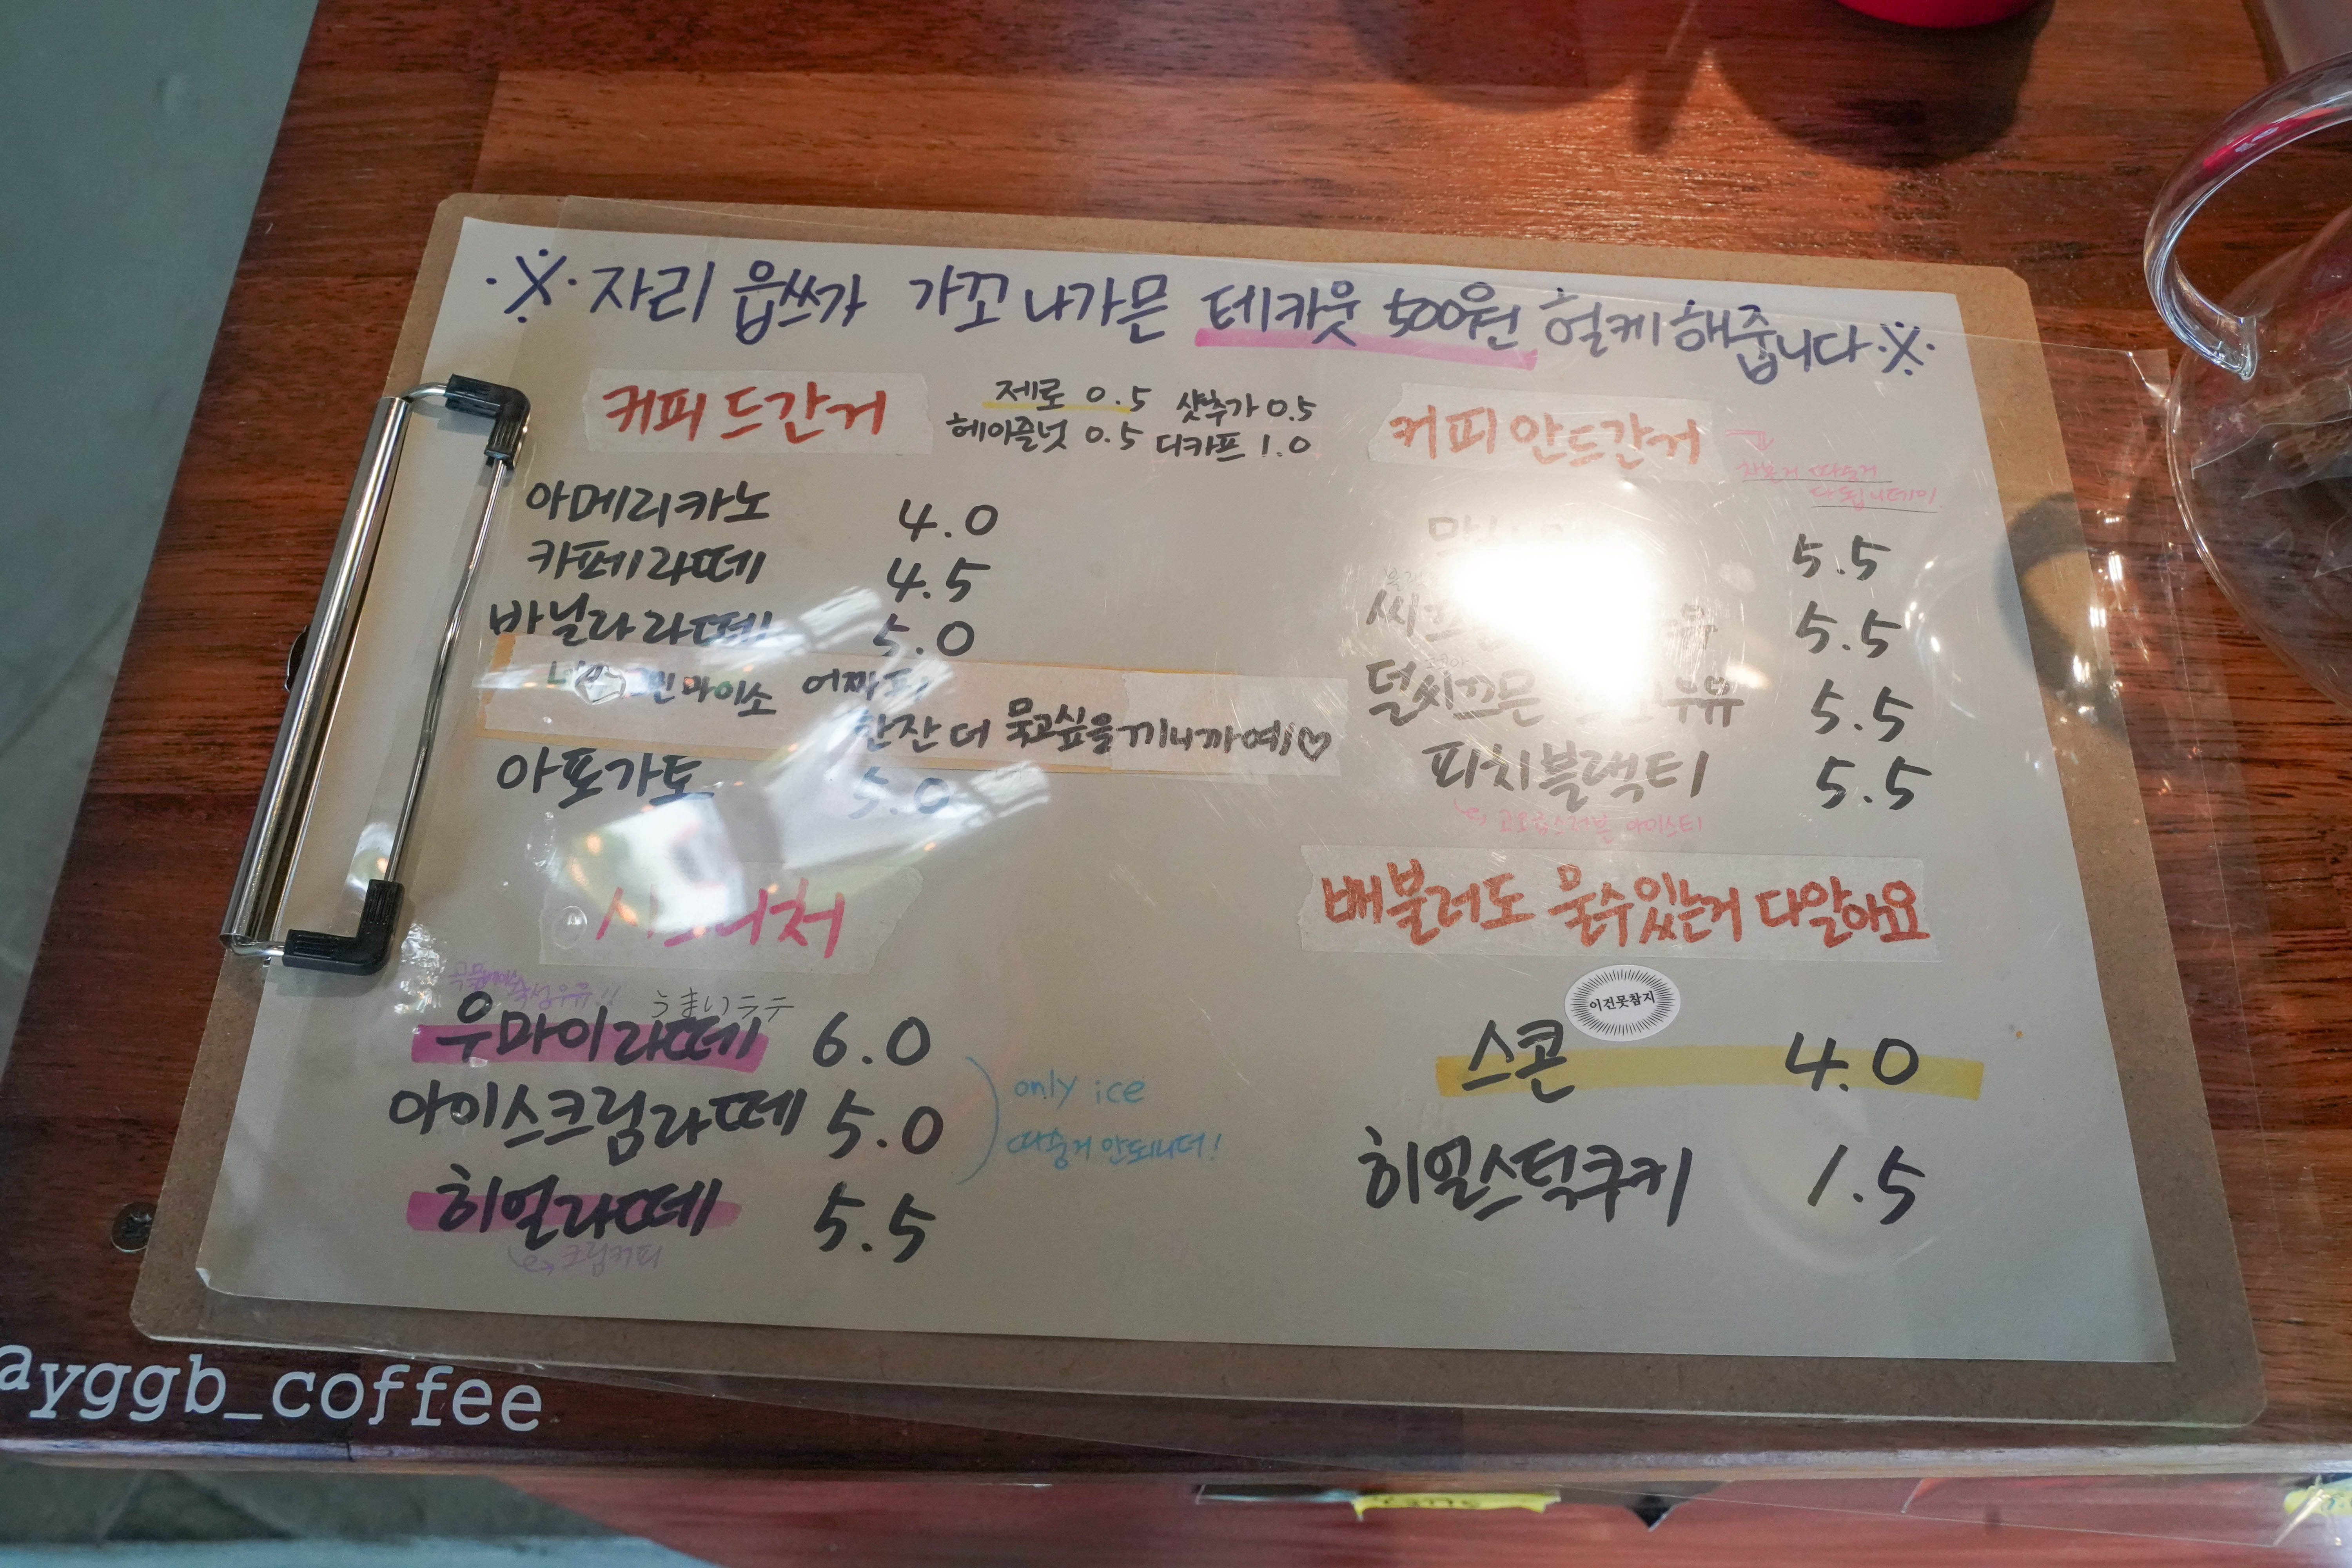 ※ 자리 읍쓰가 가꼬 나가믄 테카웃 500원 헐케 해줍니다 ※
커피 드간거
제로 0.5 샷추가 0.5
헤이즐넛 0.5 디카프 1.0
아메리카노 4.0
카페라떼 4.5
바닐라 라떼 5.0
마이소 어짜피
한잔 더 묵고싶을끼니까예♡
아포가토 5.0
시그니처
うまいラテ
우마이라떼 6.0
아이스크림라떼 5.0
히얼라떼 5.5
크림커피
only ice
따숩거 안되니더!
커피 안드간거
5.5
5.5
덜씨끄믄 우유 5.5
피치블랙티 5.5
아이스티
배불러도 물수있는거 다알아요
이건못참지
스콘 4.0
히얼스틱쿠키 1.5
ayggb_coffee